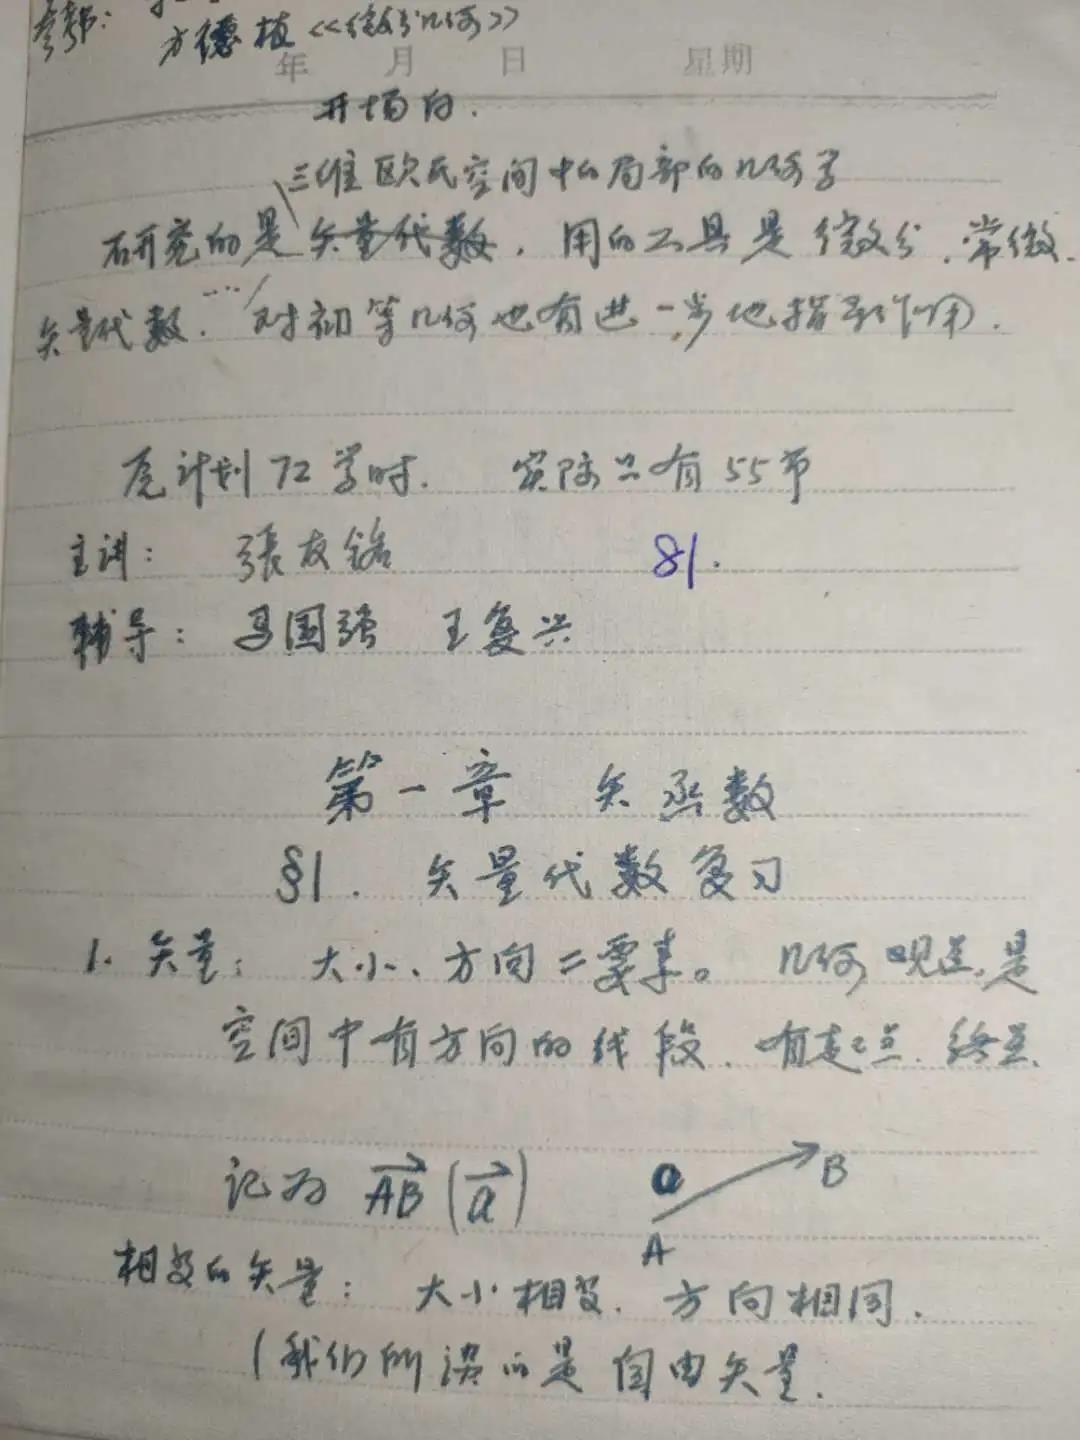 参考:
方德植《微分几何》
年 月 日 星期
开场白.
三维欧氏空间中的局部的几何学
研究的是矢量代数，用的工具是微分、常微.
矢量代数. …对初等几何也有进一步地指导作用.
原计划72学时. 实际只有55节
主讲: 張友 81.
辅导: 马国强 王复兴
第一章 矢函数
§1. 矢量代数复习
1. 矢量: 大小、方向二要素。几何观点,是
空间中有方向的线段、有起点、终点.
记为 $\overrightarrow{AB}(\vec{a})$ a B
A
相等的矢量: 大小相等、方向相同.
(我们所误的是自由矢量.